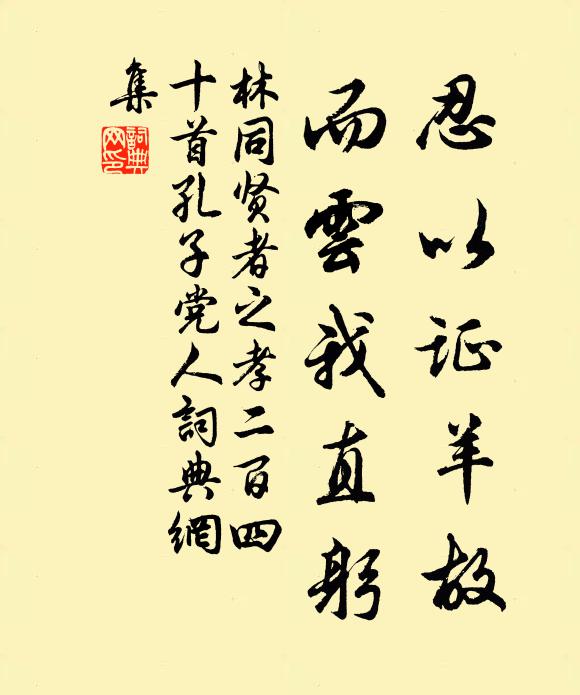 忍以证羊故
而雲我直躬
林同贤者之孝二百四
十首孔子党人詞典網
集
詞典
网印